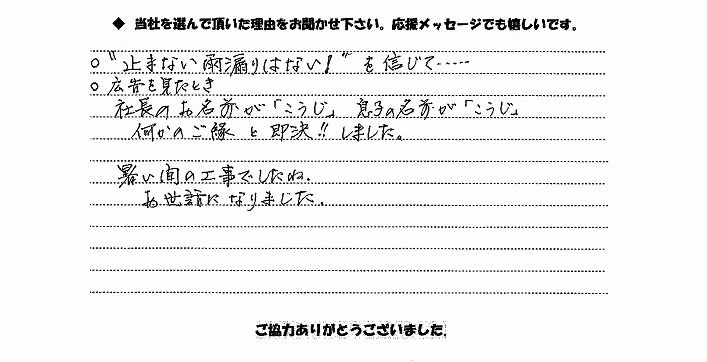 ◆ 当社を選んで頂いた理由をお聞かせ下さい。応援メッセージでも嬉しいです。
○ "止まない雨漏りはない!" を信じて……
○ 広告を見たとき
社長のお名前が「こうじ」 息子の名前が「こうじ」
何かのご縁 と 即決!! しました。
暑い間の工事でしたね.
お世話になりました.
ご協力ありがとうございました.